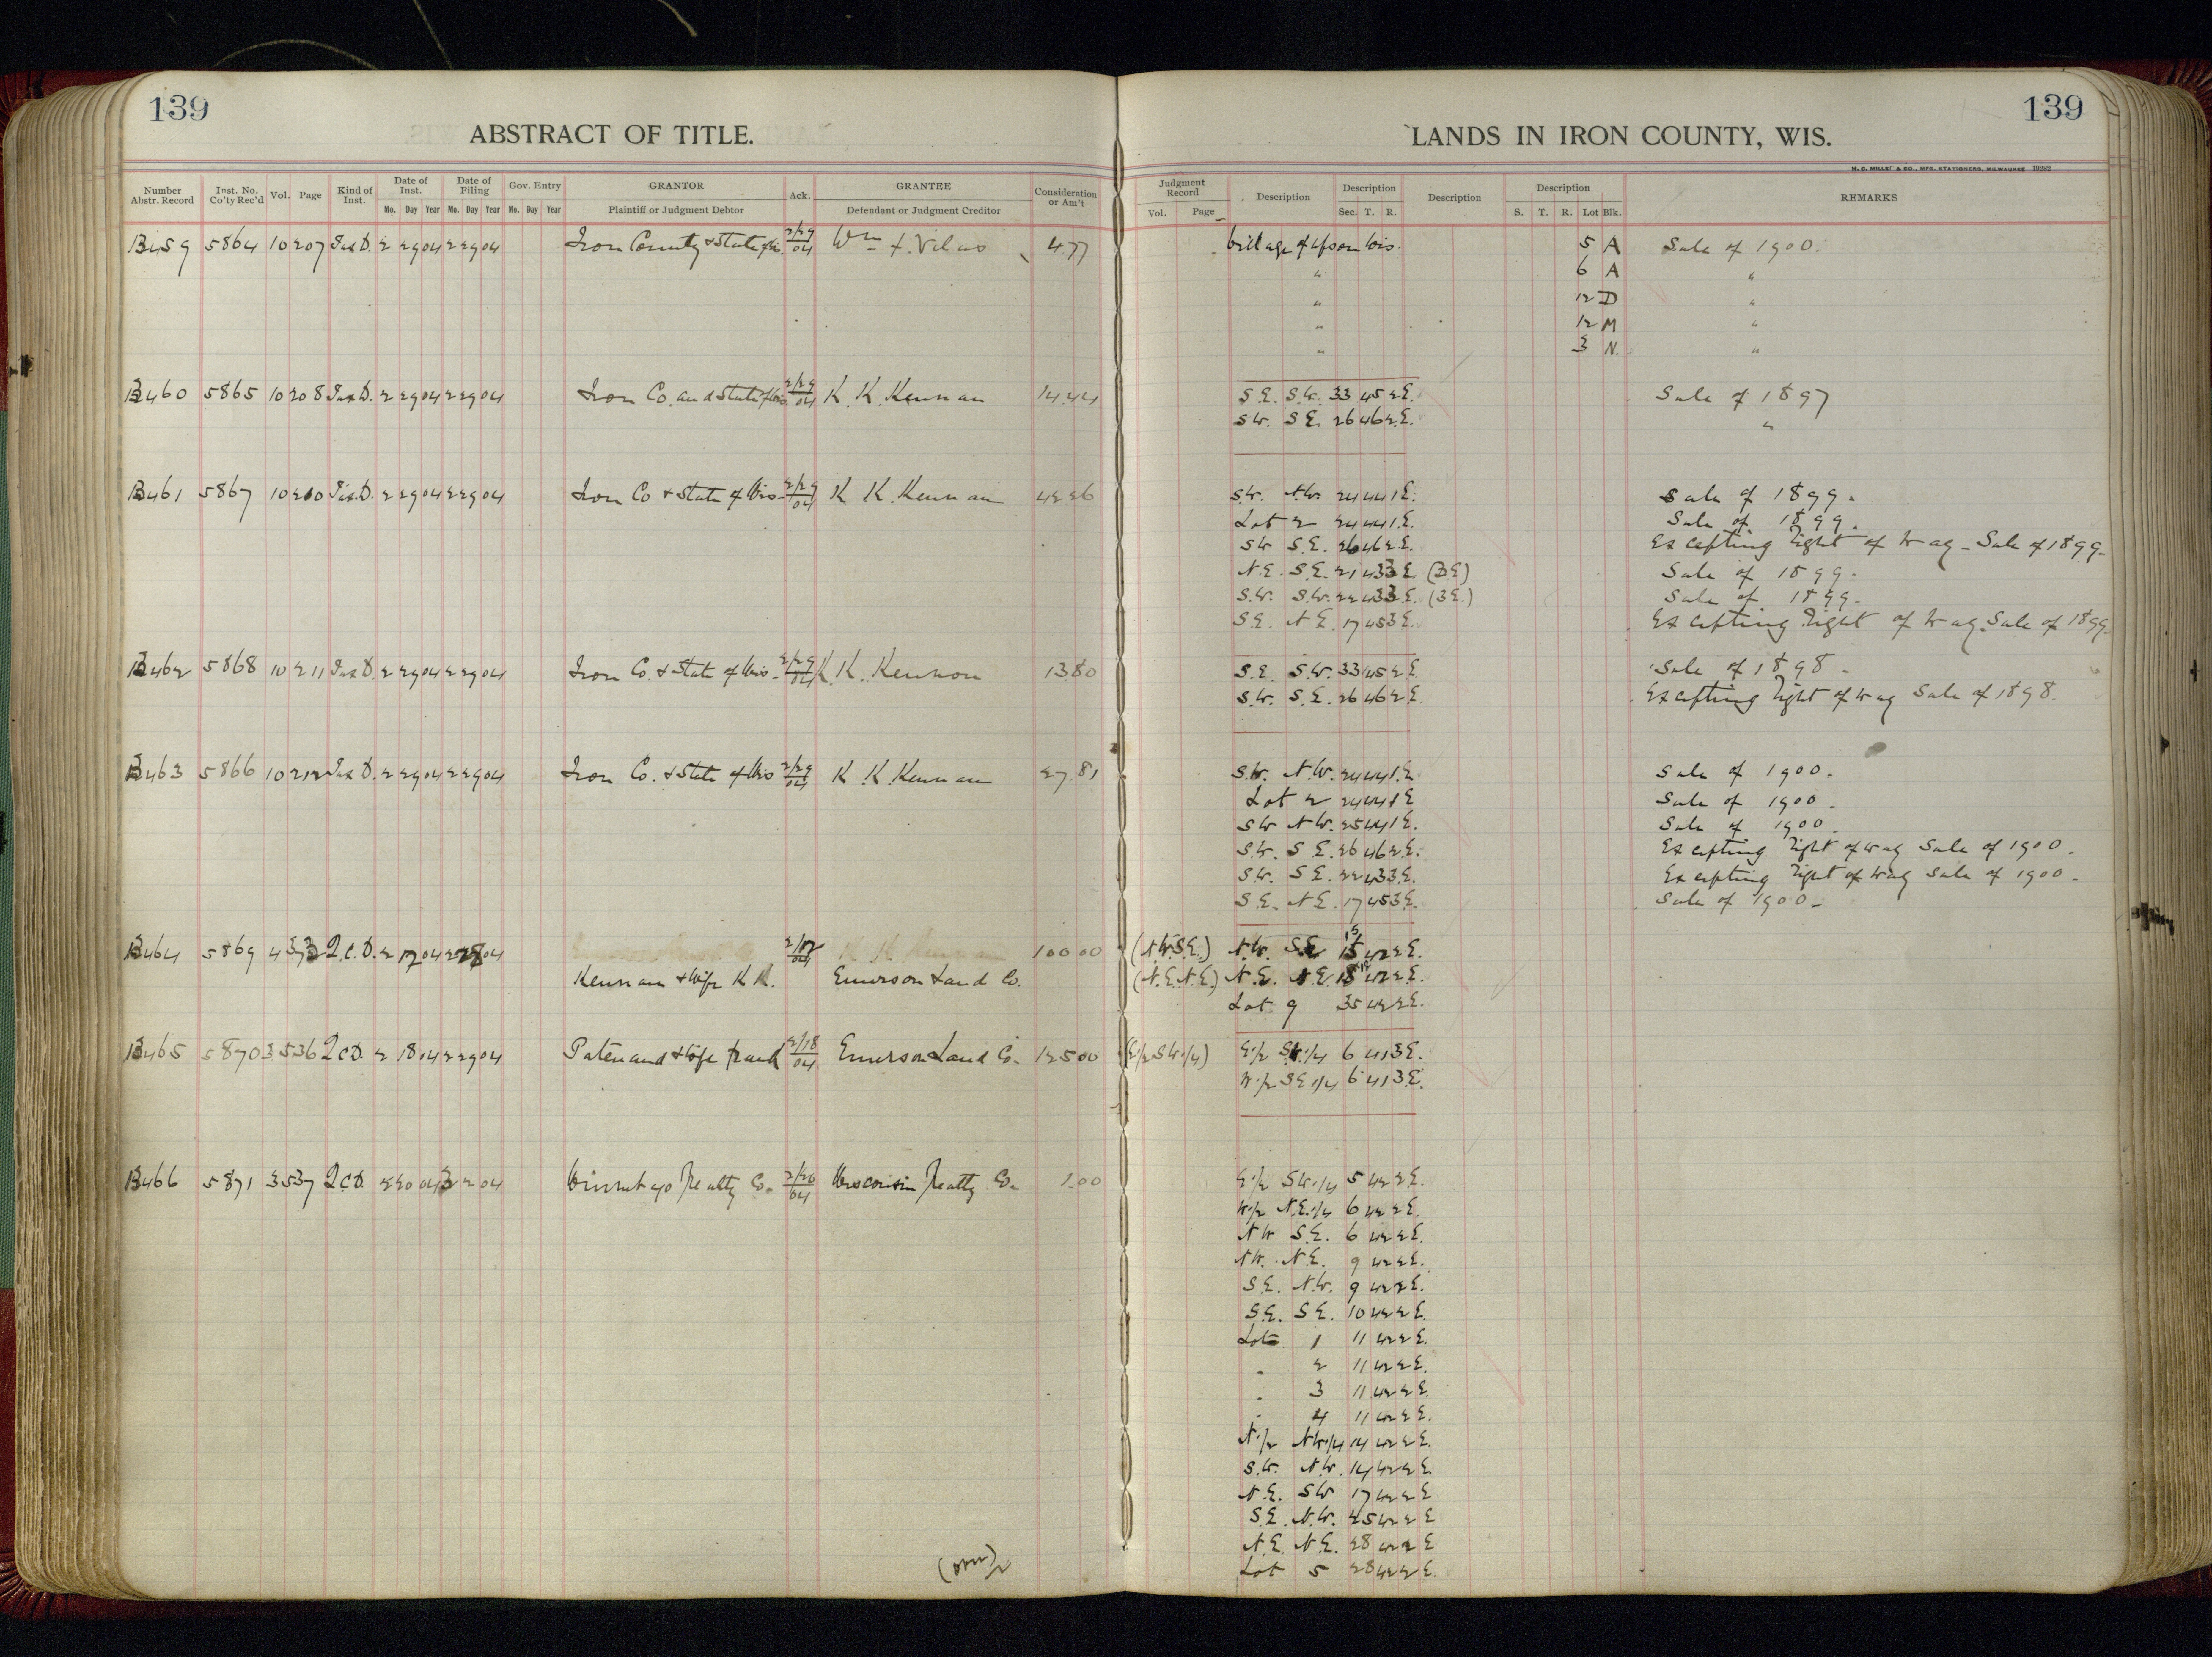 139
ABSTRACT OF TITLE.
LANDS IN IRON COUNTY, WIS.
139
H. C. MILLER & CO., MFG. STATIONERS, MILWAUKEE 19292
Number Abstr. Record Inst. No. Co'ty Rec'd Vol. Page Kind of Inst. Date of Inst. Mo. Day Year Date of Filing Mo. Day Year Gov. Entry Mo. Day Year GRANTOR Plaintiff or Judgment Debtor Ack. GRANTEE Defendant or Judgment Creditor Consideration or Am't
Judgment Record Vol. Page Description Description Sec. T. R. Description Description S. T. R. Lot Blk. REMARKS
B459 5864 10 207 Tax D. 2 29 04 2 29 04 Iron County & State of Wis. 2/29 04 Wm F. Vilas 4.77 Village of Upson Wis. 5 A Sale of 1900.
" 6 A "
" 12 D "
" 12 M "
" 3 N. "
B460 5865 10 208 Tax D. 2 29 04 2 29 04 Iron Co. and State of Wis. 2/29 04 K. K. Kennan 14.44 S.E. S.W. 33 45 2 E. Sale of 1897
S.W. S.E. 26 46 2 E. "
B461 5867 10 210 Tax D. 2 29 04 2 29 04 Iron Co & State of Wis. 2/29 04 K. K. Kennan 42.26 S.W. N.W. 24 44 1 E. Sale of 1899.
Lot 2 24 44 1 E. Sale of 1899.
SW S.E. 26 46 2 E. Excepting right of way - Sale of 1899.
N.E. S.E. 21 43 3 E. (3E) Sale of 1899.
S.W. S.W. 22 43 3 E. (3E.) Sale of 1899.
S.E. N.E. 17 45 3 E. Excepting right of way. Sale of 1899.
B462 5868 10 211 Tax D. 2 29 04 2 29 04 Iron Co. & State of Wis. 2/29 04 K. K. Kennon 13.80 S.E. S.W. 33 45 2 E. Sale of 1898.
S.W. S.E. 26 46 2 E. Excepting right of way Sale of 1898.
B463 5866 10 212 Tax D. 2 29 04 2 29 04 Iron Co. & State of Wis 2/29 04 K. K. Kennan 27.81 S.W. N.W. 24 44 1 E. Sale of 1900.
Lot 2 24 44 1 E Sale of 1900.
SW NW. 25 44 1 E. Sale of 1900.
S.W. S.E. 26 46 2 E. Excepting right of way Sale of 1900.
S.W. S.E. 22 43 3 E. Excepting right of way Sale of 1900.
S.E. N.E. 17 45 3 E. Sale of 1900.
B464 5869 4 Q.C.D. 2 17 04 2 04 2/17 04 100.00 (N.W.S.E.) N.W. S.E. 15 42 2 E.
Kennan & Wife K K. Emerson Land Co. (N.E.N.E.) N.E. N.E. 42 2 E.
Lot 9 35 42 2 E.
B465 5870 3 536 Q.C.D. 2 18 04 2 29 04 Patenaud & Wife Frank 2/18 04 Emerson Land Co. 125.00 (E.1/2 S.W.1/4) E.1/2 S.W.1/4 6 41 3 E.
W.1/2 S.E.1/4 6 41 3 E.
B466 5871 3 537 Q.C.D. 2 20 04 3 2 04 Winnebago Realty Co. 2/20 04 Wisconsin Realty Co. 1.00 E.1/2 S.W.1/4 5 42 2 E.
W.1/2 N.E.1/4 6 42 2 E.
NW S.E. 6 42 2 E.
NW. N.E. 9 42 2 E.
S.E. N.W. 9 42 2 E.
S.E. S.E. 10 42 2 E.
Lots 1 11 42 2 E.
" 2 11 42 2 E.
" 3 11 42 2 E.
" 4 11 42 2 E.
N.1/2 NW.1/4 14 42 2 E.
S.W. N.W. 14 42 2 E.
N.E. SW 17 42 2 E
S.E. N.W. 25 42 2 E
N.E. N.E. 28 42 2 E
(over) Lot 5 28 42 2 E.